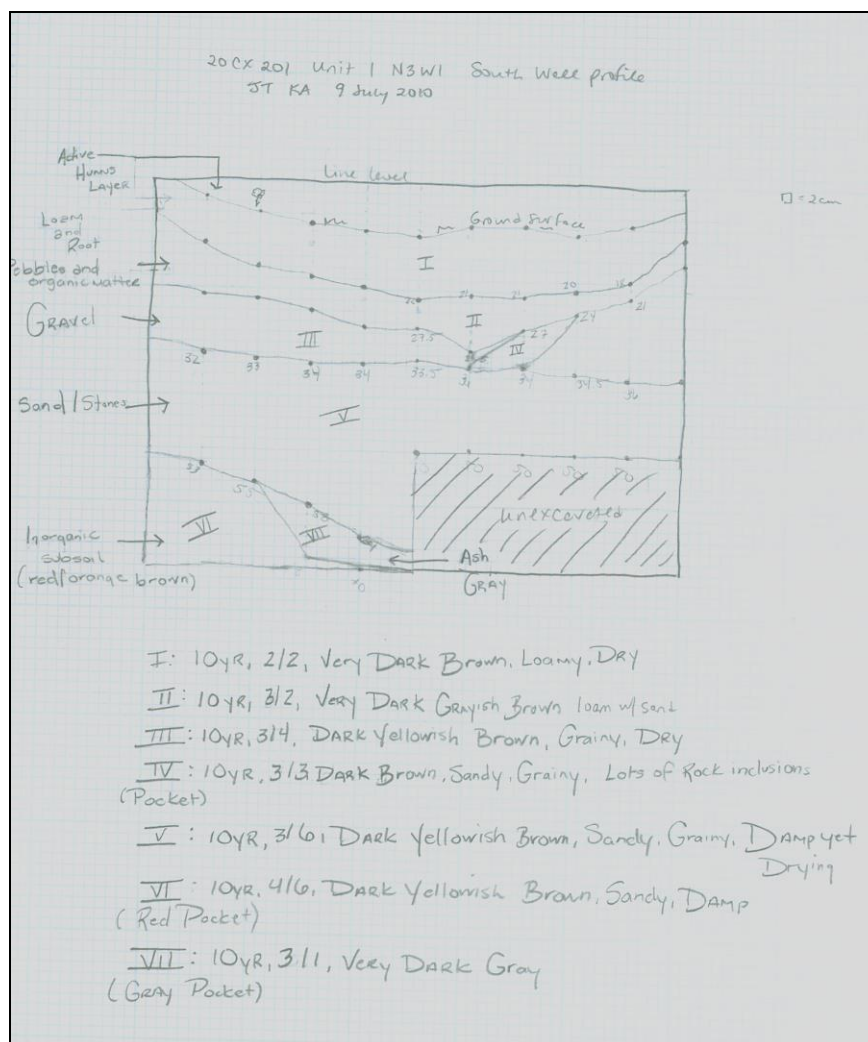 20CX201 Unit 1 N3W1 South Wall profile
JT KA 9 July 2010
Active
Humus
Layer
Line level
□ = 2cm
Loam
and
Root
Ground surface
I
Pebbles and
organic matter
20 21 21 20 18
II
21
24
GRAVEL
III
27.5
27
IV
32 33 34 34 33.5 34 34.5 36
Sand/Stones
V
50 50
55
58
VI
VII
unexcavated
Inorganic
subsoil
(red/orange brown)
Ash
70
GRAY
I: 10YR, 2/2, Very DARK Brown, Loamy, DRY
II: 10YR, 3/2, Very DARK Grayish Brown loam w/ sand
III: 10YR, 3/4, DARK Yellowish Brown, Grainy, DRY
IV: 10YR, 3/3 DARK Brown, Sandy, Grainy, Lots of Rock inclusions
(Pocket)
V: 10YR, 3/6, DARK Yellowish Brown, Sandy, Grainy, DAMP yet
Drying
VI: 10YR, 4/6, DARK Yellowish Brown, Sandy, DAMP
(Red Pocket)
VII: 10YR, 3/1, Very DARK Gray
(GRAY Pocket)